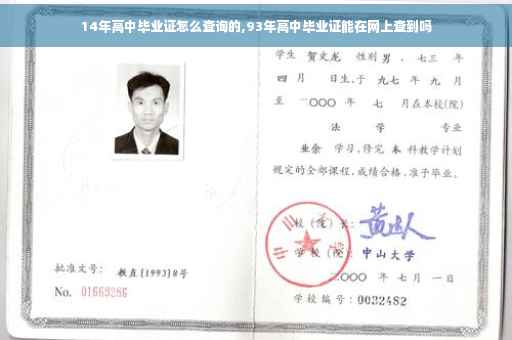 14年高中毕业证怎么查询的,93年高中毕业证能在网上查到吗
学生 贺文龙 性别 男 、七三 年
四 月 日生,于 九七 年 九 月
至 二〇〇〇 年 七 月在本校(院)
法 学 专业
业余 学习,修完 本 科教学计划
规定的全部课程,成绩合格,准予毕业。
校(院)长:
学 校(院): 中山大学
二〇〇〇 年 七 月 一 日
批准文号: 教直[1993]8号
No. 01669286
学校编号: 0032482